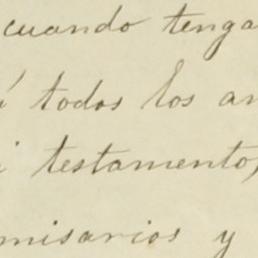 cuando tenga
á todos los an
i testamento,
misarios y